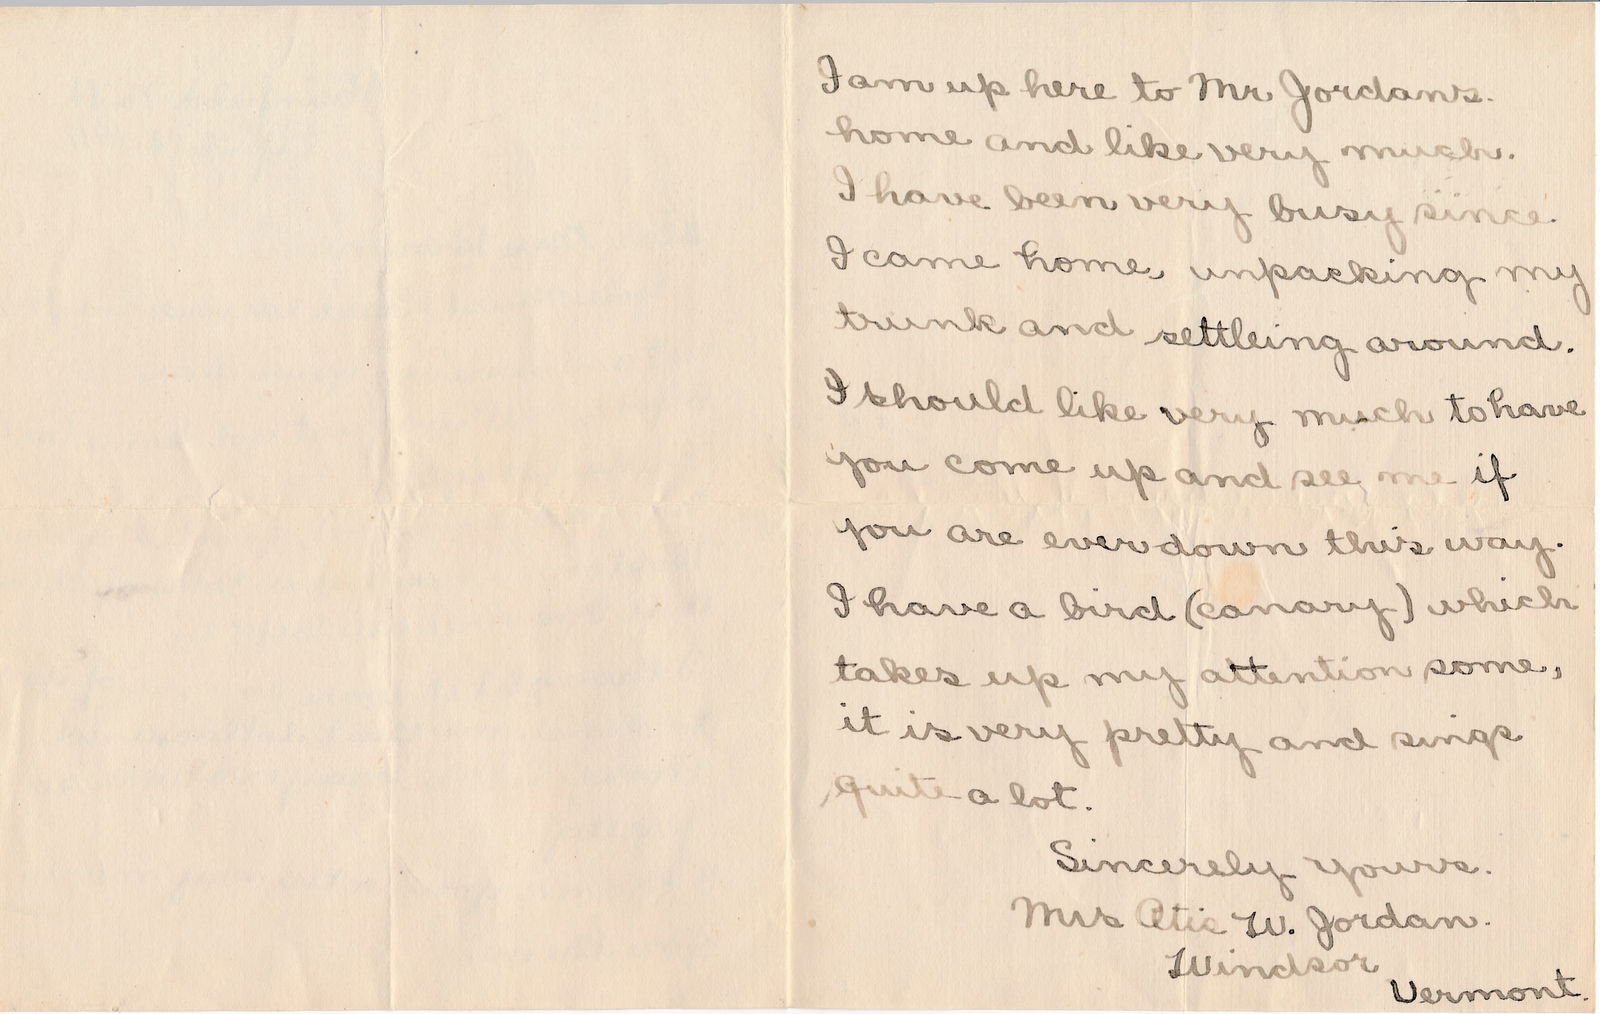 I am up here to Mr Jordan's.
home and like very much.
I have been very busy since.
I came home, unpacking my
trunk and settleing around.
I should like very much to have
you come up and see, me if
you are ever down this way.
I have a bird (canary) which
takes up my attention some,
it is very pretty and sings
quite a lot.
Sincerely yours.
Mrs W. Jordan.
Windsor
Vermont.